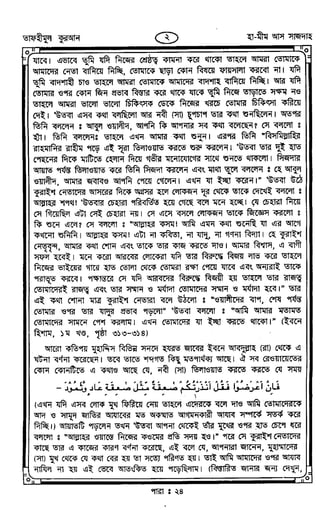 তাফহীমুল কুরআন ২ হা-মীম আস সাজদাহ
যাবে। এভাবে তুমি যদি নিজের শ্রেষ্ঠত্ব কামনা করে থাকো তাহলে আমরা তোমাকে
আমাদের নেতা বানিয়ে নিচ্ছি, তোমাকে ছাড়া কোন বিষয়ে ফায়সালা করবো না। যদি
তুমি বাদশাহী চাও তাহলে আমরা তোমাকে আমাদের বাদশাহ বানিয়ে নিচ্ছি। আর যদি
তোমার ওপর কোন জিন প্রভাব বিস্তার করে থাকে যাকে তুমি নিজে তাড়াতে সক্ষম নও
তাহলে আমরা ভালো ভালো চিকিৎসক ডেকে নিজের খরচে তোমার চিকিৎসা করিয়ে
দেই।' 'উতবা এসব কথা বলছিলো আর নবী (সা) চুপচাপ তার কথা শুনছিলেন। অতপর
তিনি বললেন : আবুল ওয়ালীদ, আপনি কি আপনার সব কথা বলেছেন। সে বললো :
হাঁ। তিনি বললেনঃ তাহলে এখন আমার কথা শুনুন। এরপর তিনি "বিসমিল্লাহির
রাহমানির রাহীম পড়ে এই সূরা তিলাওয়াত করতে শুরু করলেন। 'উতবা তার দুই হাত
পেছনের দিকে মাটিতে হেলান দিয়ে গভীর মনোযোগের সাথে শুনতে থাকলো। সিজদার
আয়াত পর্যন্ত তিলাওয়াত করে তিনি সিজদা করলেন এবং মাথা তুলে বললেন : হে আবুল
ওয়ালীদ, আমার জবাবও আপনি পেয়ে গেলেন। এখন যা ইচ্ছা করেন।" 'উতবা উঠে
কুরাইশ নেতাদের আসরের দিকে অগ্রসর হলে লোকজন দূর থেকে তাকে দেখেই বললো :
আল্লাহর শপথ! 'উতবার চেহারা পরিবর্তিত হয়ে গেছে বলে মনে হচ্ছে। যে চেহারা নিয়ে
সে গিয়েছিল এটা সেই চেহারা নয়। সে এসে বসলে লোকজন তাকে জিজ্ঞেস করলো :
কি শুনে এলে? সে বললো : "আল্লাহর কসম! আমি এমন কথা শুনেছি যা এর আগে
কখনো শুনিনি। আল্লাহর কসম! এটা না কবিতা, না যাদু, না গণনা বিদ্যা। হে কুরাইশ
নেতৃবৃন্দ, আমার কথা শোন এবং তাকে তার কাজ করতে দাও। আমার বিশ্বাস, এ বাণী
সফল হবেই। মনে করো আরবের লোকেরা যদি তার বিরুদ্ধে বিজয় লাভ করে তাহলে
নিজের ভাইয়ের গায়ে হাত তোলা থেকে তোমরা রক্ষা পেয়ে যাবে এবং অন্যরাই তাকে
পরাভূত করবে। পক্ষান্তরে সে যদি আরবদের বিরুদ্ধে বিজয়ী হয় তাহলে তার রাজত্ব
তোমাদেরই রাজত্ব এবং তার সম্মান ও মর্যাদা তোমাদের সম্মান ও মর্যাদা হবে।" তার
এই কথা শোনা মাত্র কুরাইশ নেতারা বলে উঠলো : "ওয়ালীদের বাপ, শেষ পর্যন্ত
তোমার ওপর তার যাদুর প্রভাব পড়লো" 'উতবা বললো : "আমি আমার মতামত
তোমাদের সামনে পেশ করলাম। এখন তোমাদের যা ইচ্ছা করতে থাকো।" (ইবনে
হিশাম, ১ম খণ্ড, পৃষ্ঠা ৩১৩-৩১৪)
আরো কতিপয় মুহাদ্দিস বিভিন্ন সনদে হযরত জাবের ইবনে আবদুল্লাহ (রা) থেকে এ
ঘটনা বর্ণনা করেছেন। তবে তাতে শব্দগত কিছু মতপার্থক্য আছে। ঐ সব রেওয়ায়েতের
কোন কোনটিতে এ কথাও আছে যে, নবী (সা) তিলাওয়াত করতে করতে যে সময়
فَإِنْ أَعْرَضُوا فَقُلْ أَنْذَرْتُكُمْ صَٰعِقَةً مِثْلَ صَٰعِقَةِ عَادٍ وَثَمُودَ-
(এখন যদি এসব লোক মুখ ফিরিয়ে নেয় তাহলে এদেরকে বলে দাও আমি তোমাদেরকে
আদ ও সামূদ জাতির আযাবের মত অকস্মাৎ আগমনকারী আযাব সম্পর্কে সতর্ক করে
দিচ্ছি।) আয়াতটি পড়লেন তখন 'উতবা আপনা থেকেই তাঁর মুখের ওপর হাত চেপে ধরে
বললো : "আল্লাহর ওয়াস্তে নিজের কওমের প্রতি সদয় হও।" পরে সে কুরাইশ নেতাদের
কাছে তার এ কাজের কারণ বর্ণনা করেছে, এই বলে যে, আপনারা জানেন, মুহাম্মাদের
(সা) মুখ থেকে যে কথা বের হয় তা সত্যে পরিণত হয়। তাই আমি আমাদের ওপর আযাব
নাযিল না হয় এই ভেবে আতংকিত হয়ে পড়েছিলাম। (বিস্তারিত জানার জন্য দেখুন,
পারা : ২৪